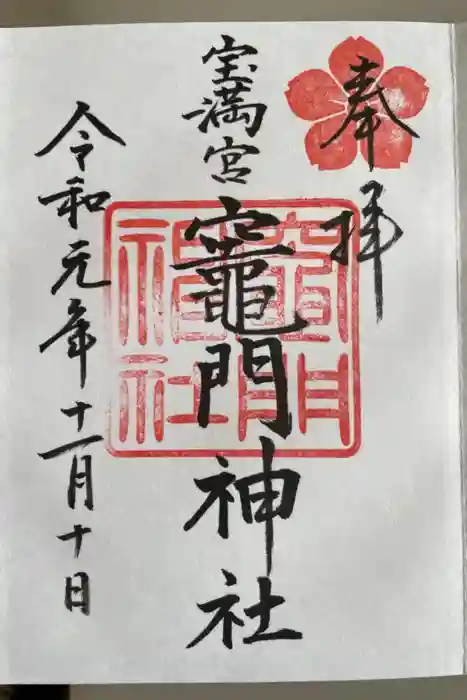 奉拝
宝満宮
竈門神社
竈門神社
令和元年十一月十日